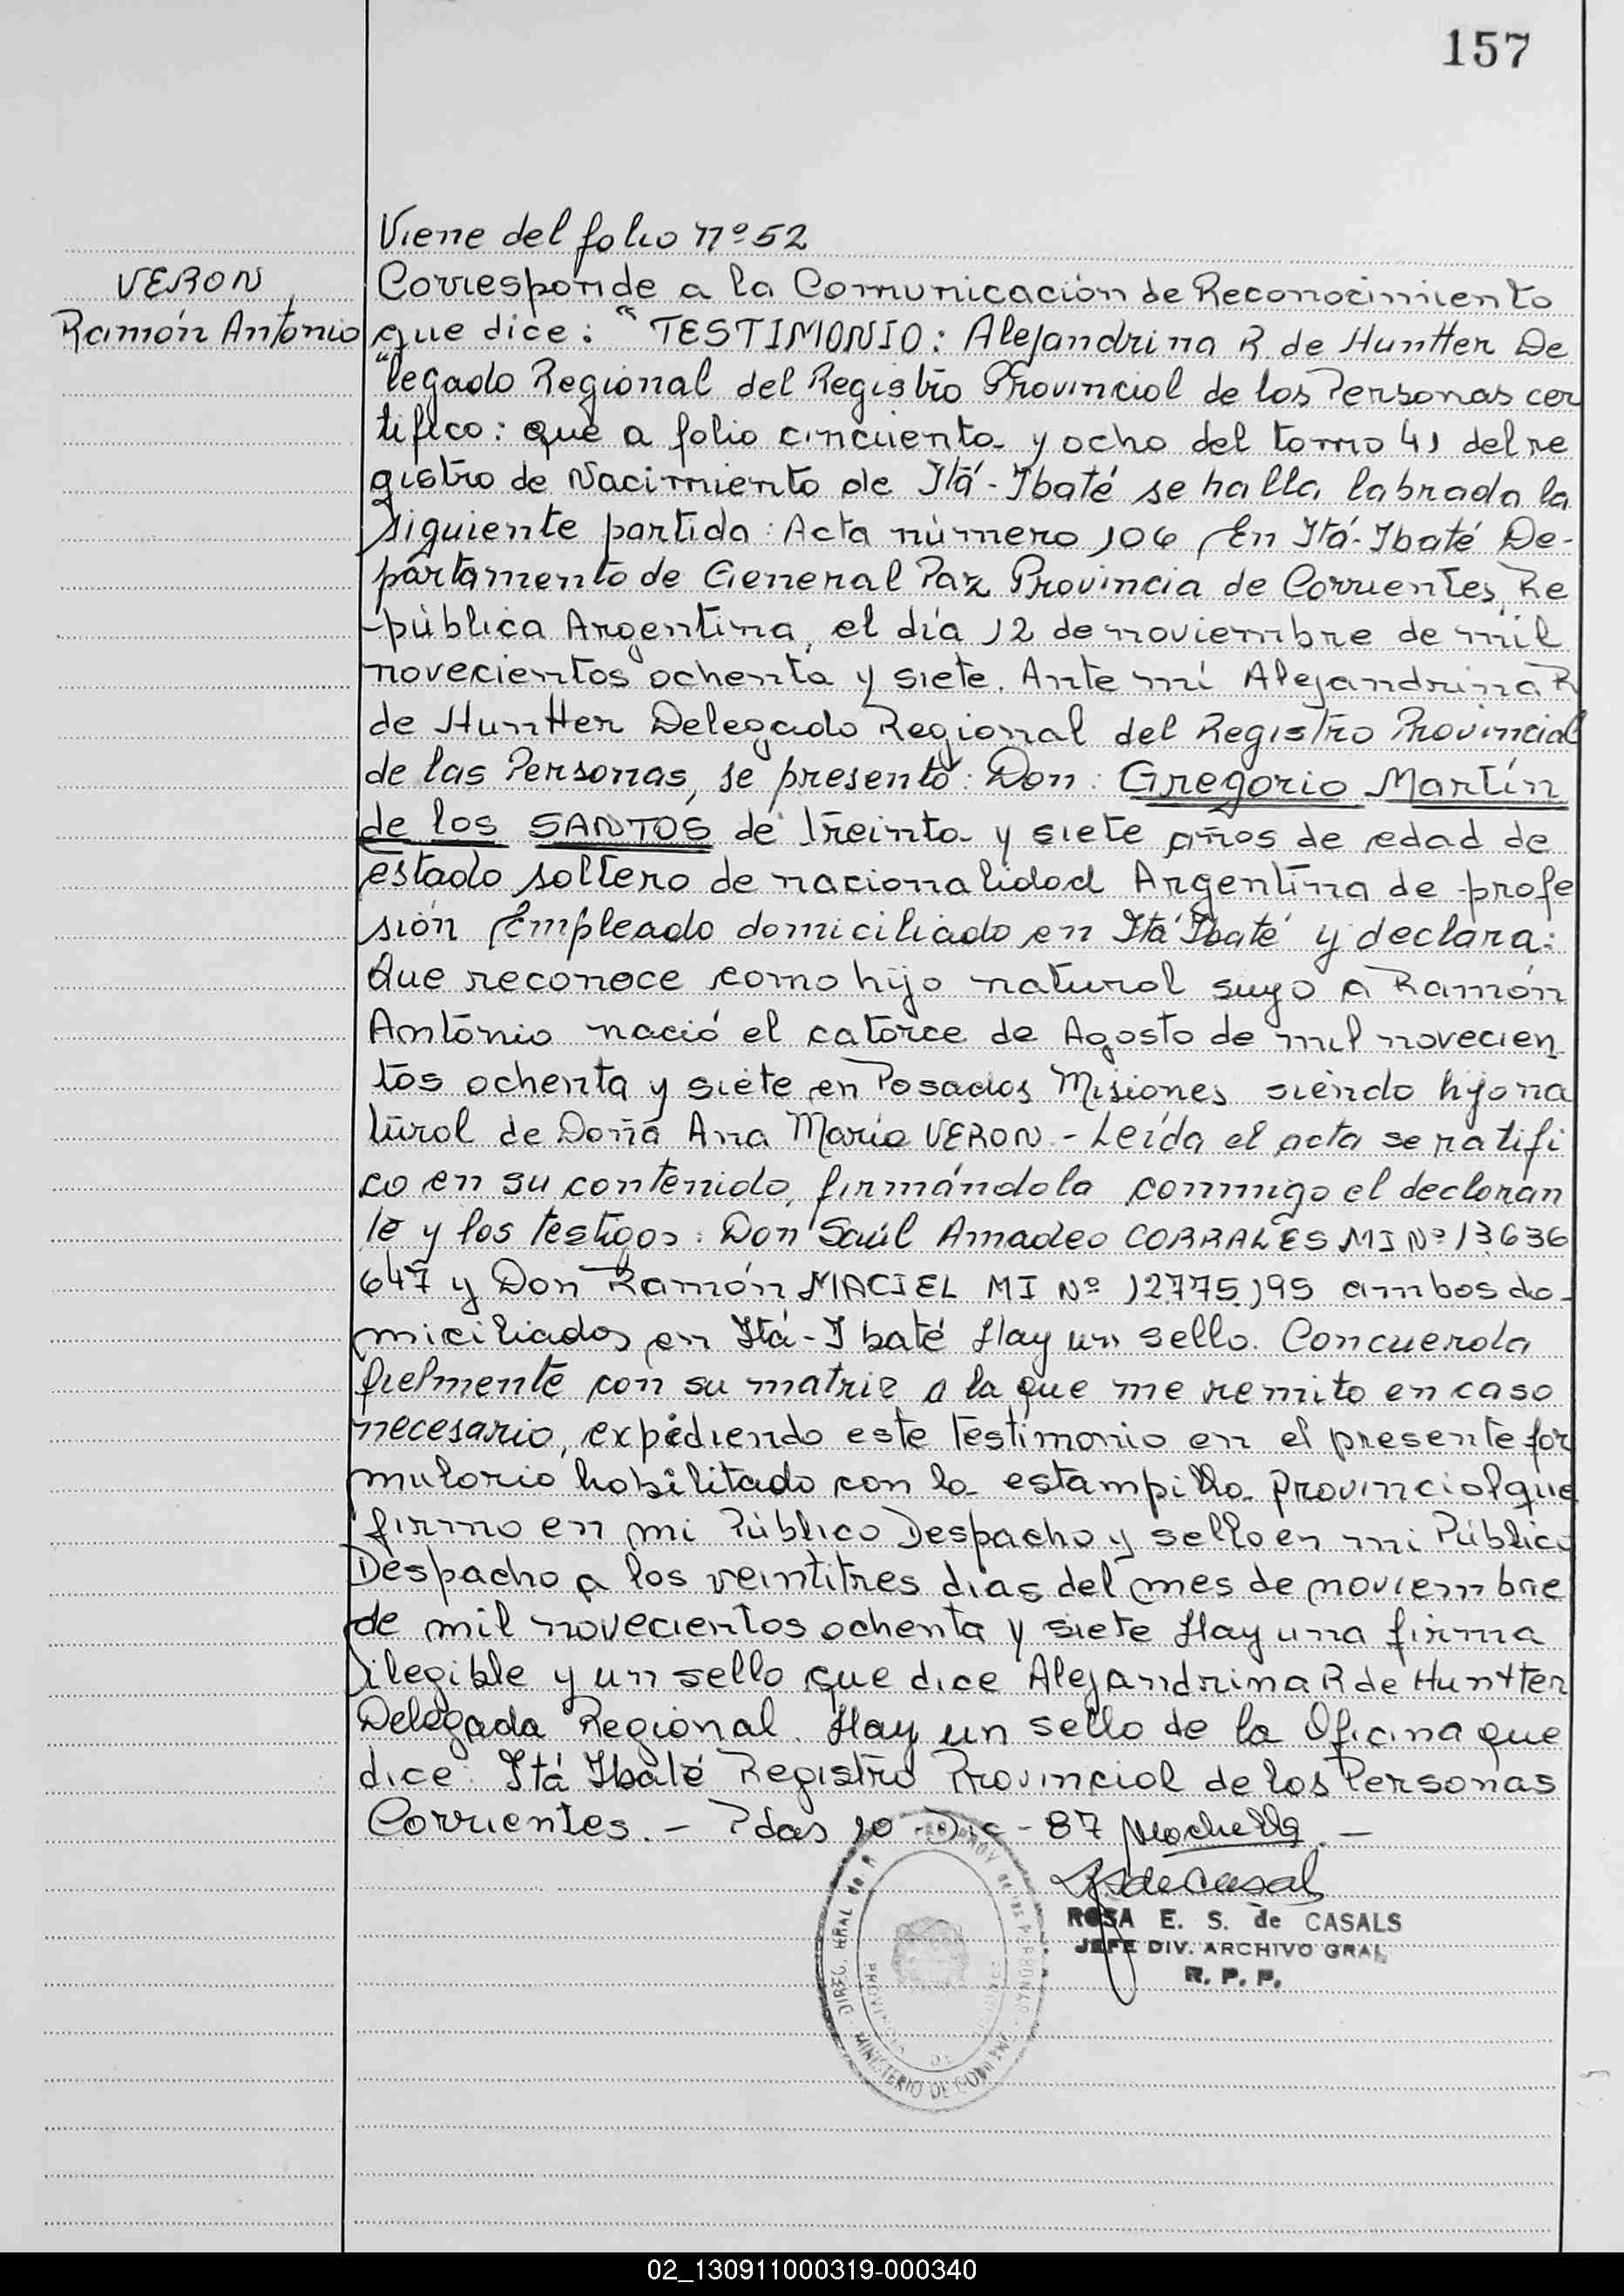 157
Viene del folio nº 52
VERON,
Ramón Antonio
Corresponde a la Comunicación de Reconocimiento
que dice: "TESTIMONIO: Alejandrina R. de Huntter De
"legado Regional del Registro Provincial de las Personas cer
tifico: que a folio cincuenta y ocho del tomo 41 del re
gistro de Nacimiento de Itá-Ibaté se halla labrada la
siguiente partida: Acta número 106 En Itá-Ibaté De-
partamento de General Paz Provincia de Corrientes, Re
-pública Argentina, el día 12 de noviembre de mil
novecientos ochenta y siete. Ante mí Alejandrina R
de Huntter Delegado Regional del Registro Provincial
de las Personas, se presentó: Don: Gregorio Martín
de los SANTOS de treinta y siete años de edad de
estado soltero de nacionalidad Argentina de profe
sión Empleado domiciliado en Itá Ibaté y declara:
Que reconoce como hijo natural suyo a Ramón
Antonio nació el catorce de Agosto de mil novecien
tos ochenta y siete en Posadas Misiones siendo hijo na
tural de Doña Ana María VERON.- Leída el acta se ratifi
co en su contenido, firmándola conmigo el declaran
te y los testigos: Don Saúl Amadeo CORRALES MI Nº 13636
647 y Don Ramón MACIEL MI Nº 12.775.195 ambos do-
miciliados en Itá-Ibaté Hay un sello. Concuerda
fielmente con su matriz a la que me remito en caso
necesario, expidiendo este testimonio en el presente for
mulario habilitado con la estampilla provincial que
firmo en mi Público Despacho y sello en mi Público
Despacho a los veintitres días del mes de noviembre
de mil novecientos ochenta y siete Hay una firma
ilegible y un sello que dice Alejandrina R de Huntter
Delegada Regional. Hay un sello de la Oficina que
dice: Itá Ibaté Registro Provincial de las Personas
Corrientes. - Pdas 10 - Dic - 87
ROSA E. S. de CASALS
JEFE DIV. ARCHIVO GRAL
R. P. P.
DIREC. GRAL de las PERSONAS
MINISTERIO DE GOBIERNO
02_130911000319-000340